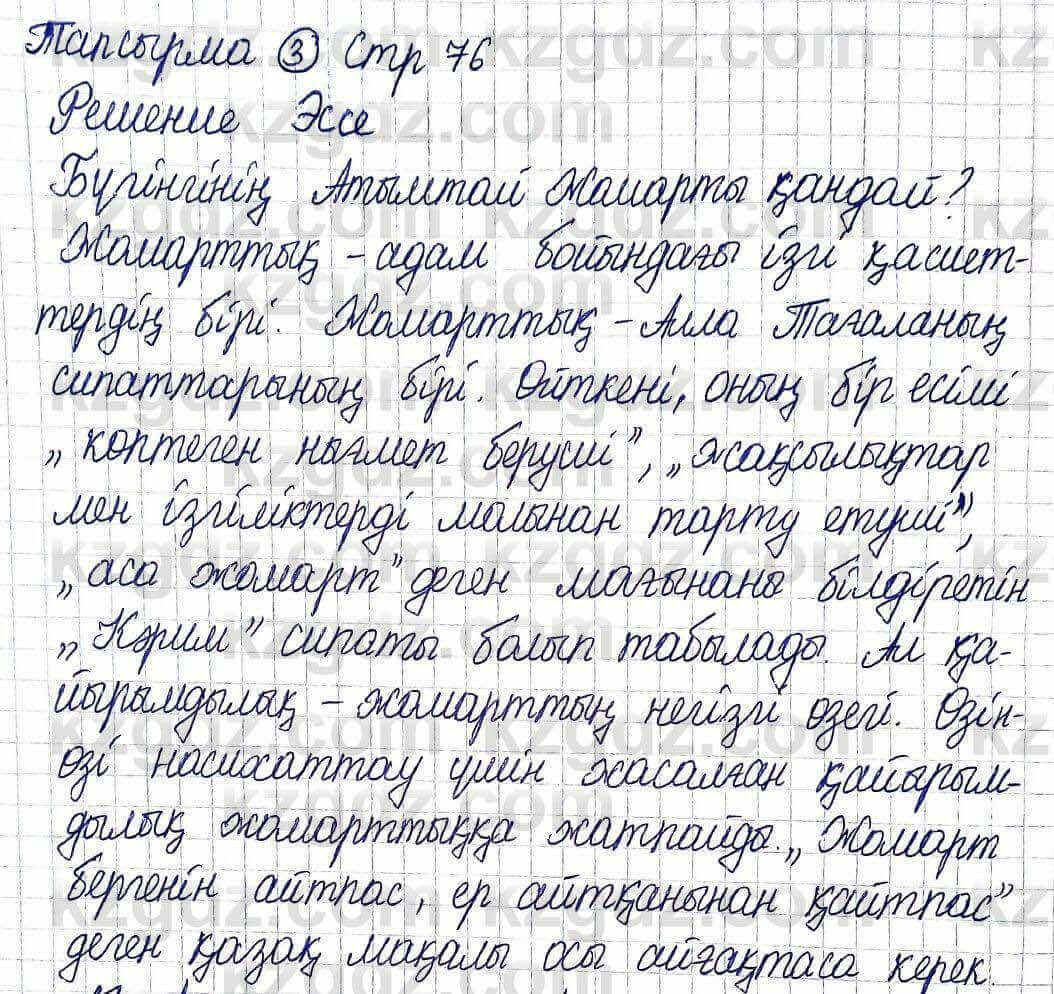 Тапсырма ③ Стр 76
Решение Эссе
Бүгінгінің Атымтай Жомарты қандай?
Жомарттық – адам бойындағы ізгі қасиет-
тердің бірі. Жомарттық – Алла Тағаланың
сипаттарының бірі. Өйткені, оның бір есімі
„көптеген нығмет беруші”, „жақсылықтар
мен ізгіліктерді молынан тарту етуші”,
„аса жомарт” деген мағынаны білдіретін
„Кәрим” сипаты болып табылады. Ал қа-
йырымдылық – жомарттың негізгі өзегі. Өзін-
өзі насихаттау үшін жасалған қайырым-
дылық жомарттыққа жатпайды. „Жомарт
бергенін айтпас, ер айтқанынан қайтпас”
деген қазақ мақалы осы айғақтаса керек.
kzgdz.com